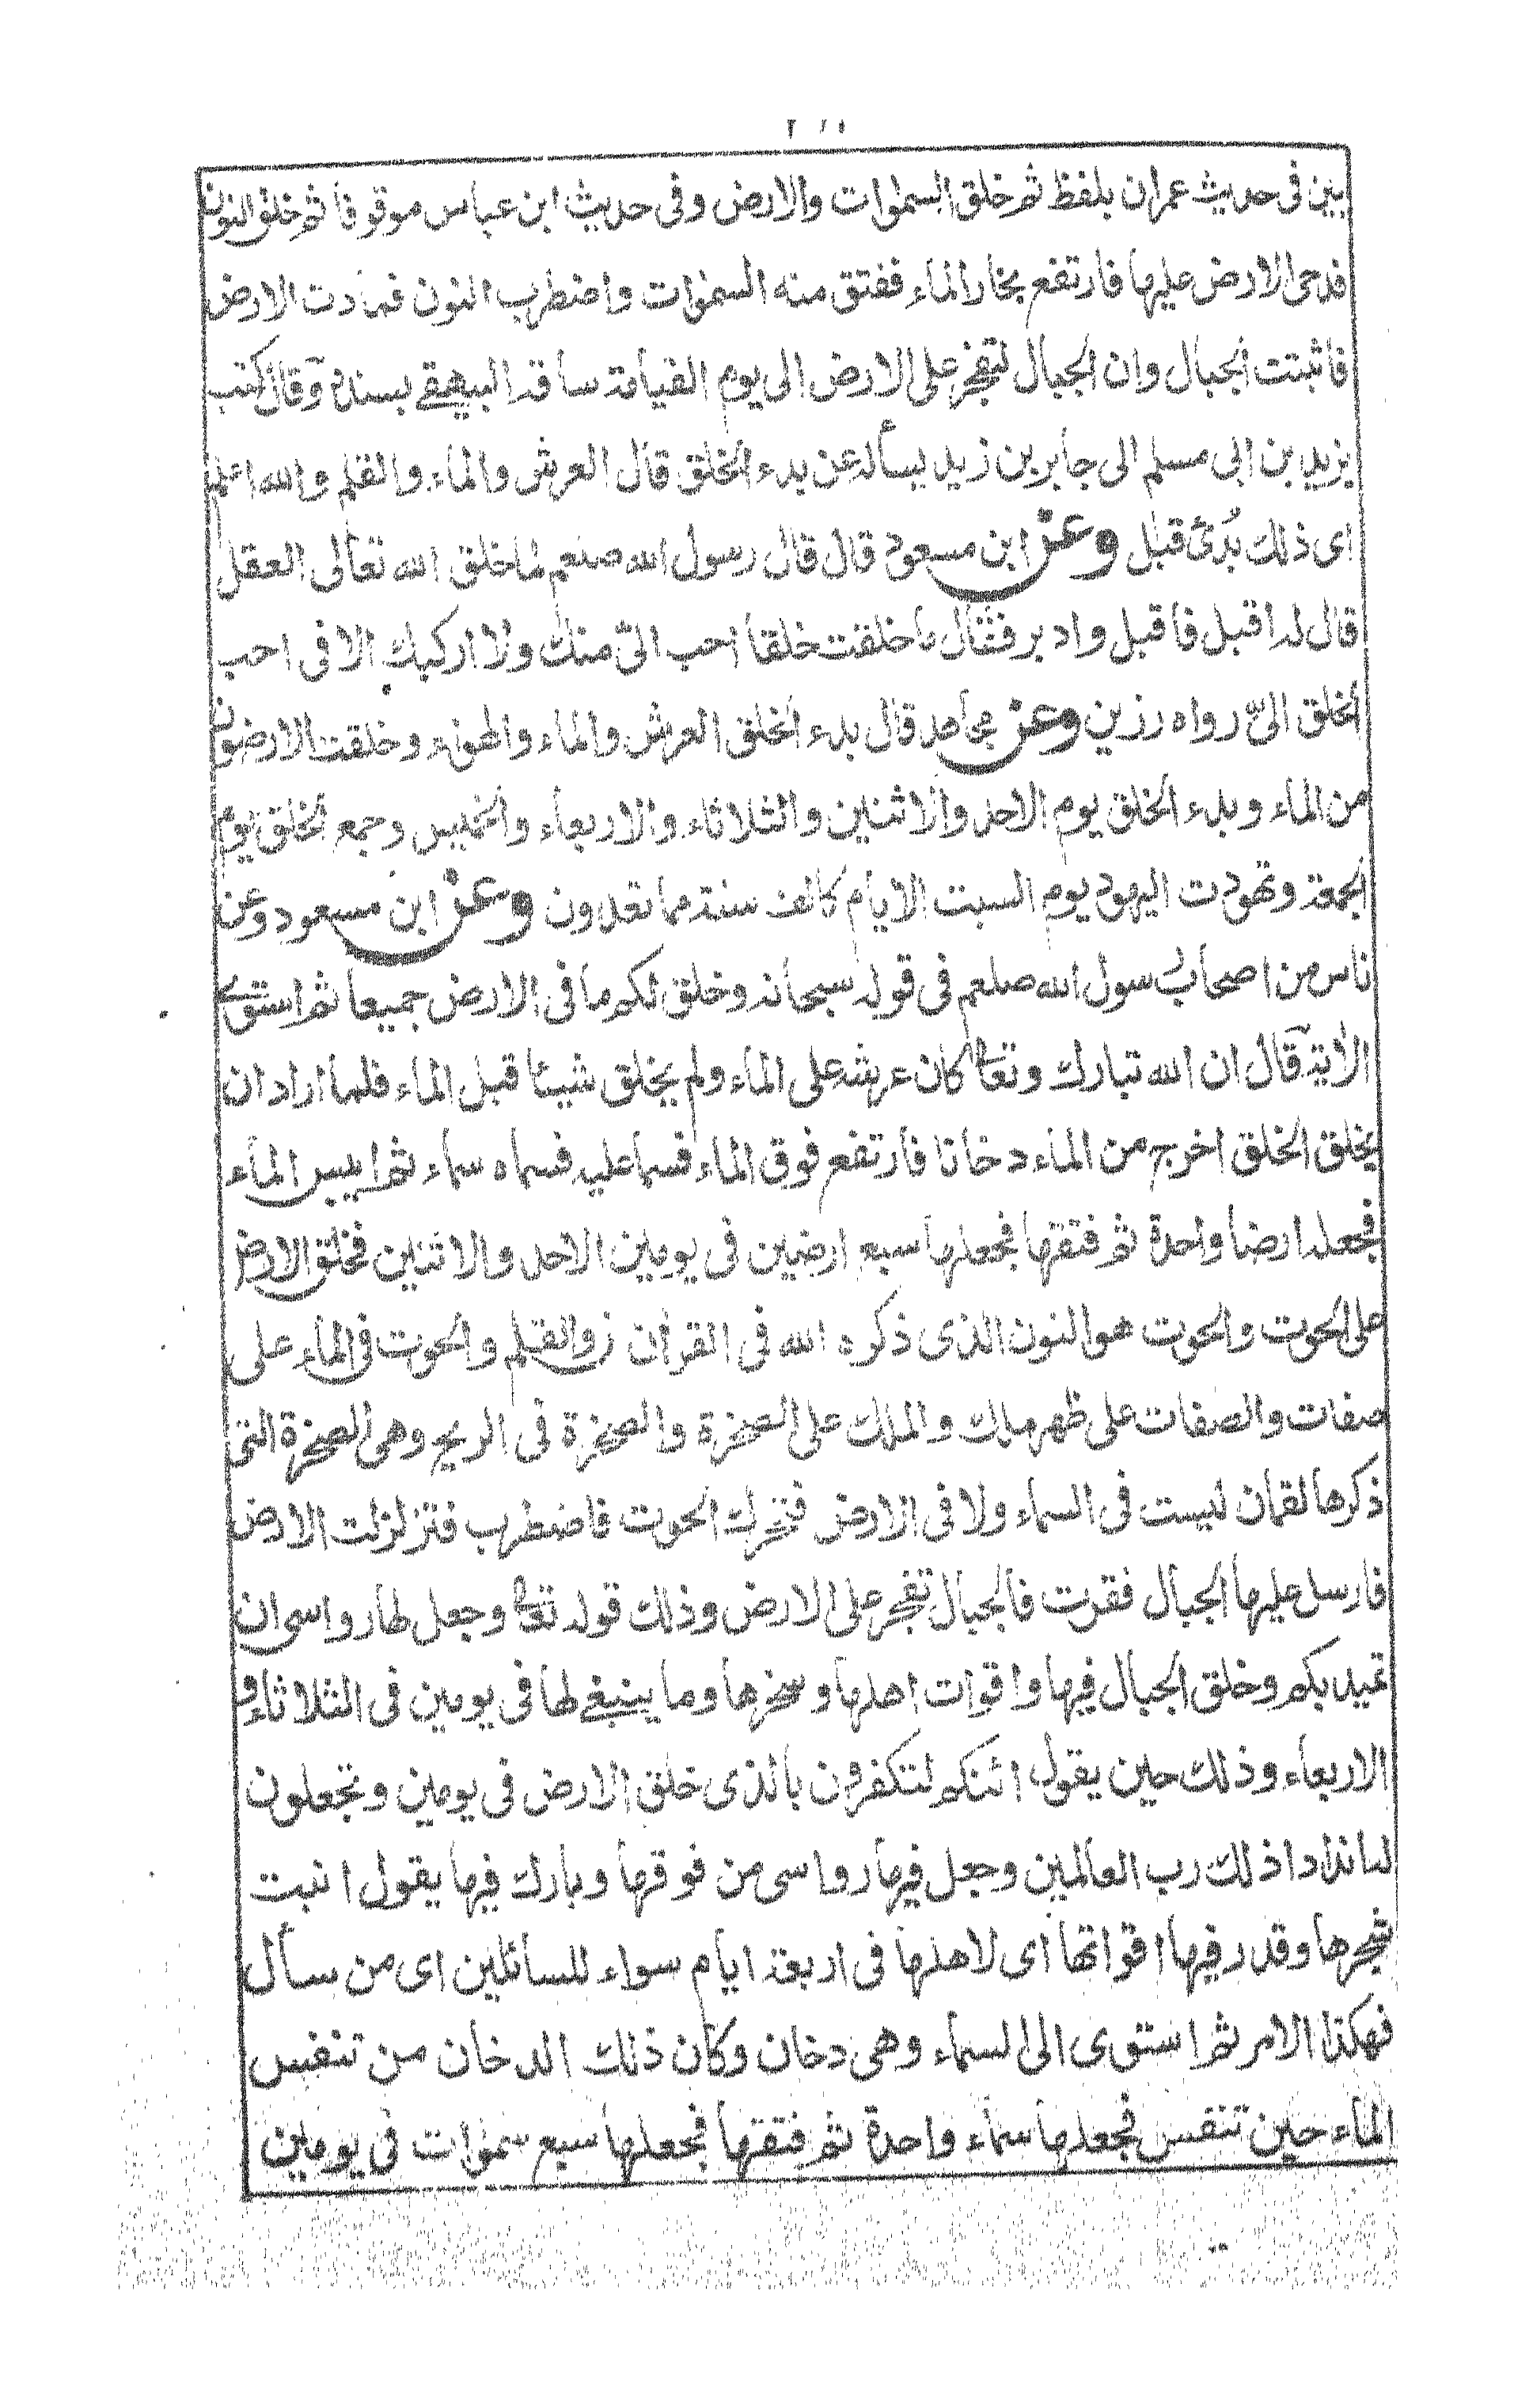 بين فى حديث عمران بلفظ ثم خلق السموات والارض وفى حديث ابن عباس موقوفا ثم خلق النون
فدحى الارض عليها فارتفع بخار الماء ففتق منه السموات واضطرب النون فمادت الارض
فاثبتت الجبال وان الجبال لتفخر على الارض الى يوم القيامة ساقه البيهقے بسنده وقال كتب
يزيد بن ابى مسلم الى جابر بن زيد يسأله عن بدء الخلق قال العرش والماء والقلم والله اعلم
اى ذلك بُدئ قبل وعن ابن مسعود قال قال رسول الله صلعم لما خلق الله تعالى العقل
قال له اقبل فاقبل وادبر فقال ما خلقت خلقا احب الىّ منك ولا اركبك الا فى احب
الخلق الىّ رواه رزين وعن مجاهد قال بدء الخلق العرش والماء والهواء وخلقت الارضون
من الماء وبدء الخلق يوم الاحد والاثنين والثلاثاء والاربعاء والخميس وجمع الخلق يوم
الجمعة وتهودت اليهود يوم السبت الايام كالف سنة مما تعدون وعن ابن مسعود وعن
ناس من اصحاب رسول الله صلعم فى قوله سبحانه وخلق لكم ما فى الارض جميعا ثم استوے
الاية قال ان الله تبارك وتعا كان عرشه على الماء ولم يخلق شيئا قبل الماء فلما اراد ان
يخلق الخلق اخرج من الماء دخانا فارتفع فوق الماء فسما عليه فسماه سماء ثم ايبس الماء
فجعله ارضا واحدة ثم فتقها فجعلها سبع ارضين فى يومين الاحد والاثنين فخلق الارض
على الحوت والحوت هو النون الذى ذكره الله فى القرأن ن والقلم والحوت فى الماء على
صفات والصفات على ظهر ملك والملك على الصخرة والصخرة فى الريح وهى الصخرة التى
ذكرها لقمان ليست فى السماء ولا فى الارض فتحرك الحوت فاضطرب فتزلزلت الارض
فارسل عليها الجبال فقرت فالجبال تفخر على الارض وذلك قوله تعا وجعل لها رواسى ان
تميد بكم وخلق الجبال فيها واقوات اهلها وسخرها وما ينبغے لها فى يومين فى الثلاثاء و
الاربعاء وذلك حين يقول ائنكم لتكفرون بالذى خلق الارض فى يومين وتجعلون
له اندادا ذلك رب العالمين وجعل فيها رواسى من فوقها وبارك فيها يقول انبت
شجرها وقدر فيها اقواتها اى لاهلها فى اربعة ايام سواء للسائلين اى من سأل
فهكذا الامر ثم استوى الى السماء وهى دخان وكان ذلك الدخان من تنفس
الماء حين تنفس فجعلها سماء واحدة ثم فتقها فجعلها سبع سموات فى يومين